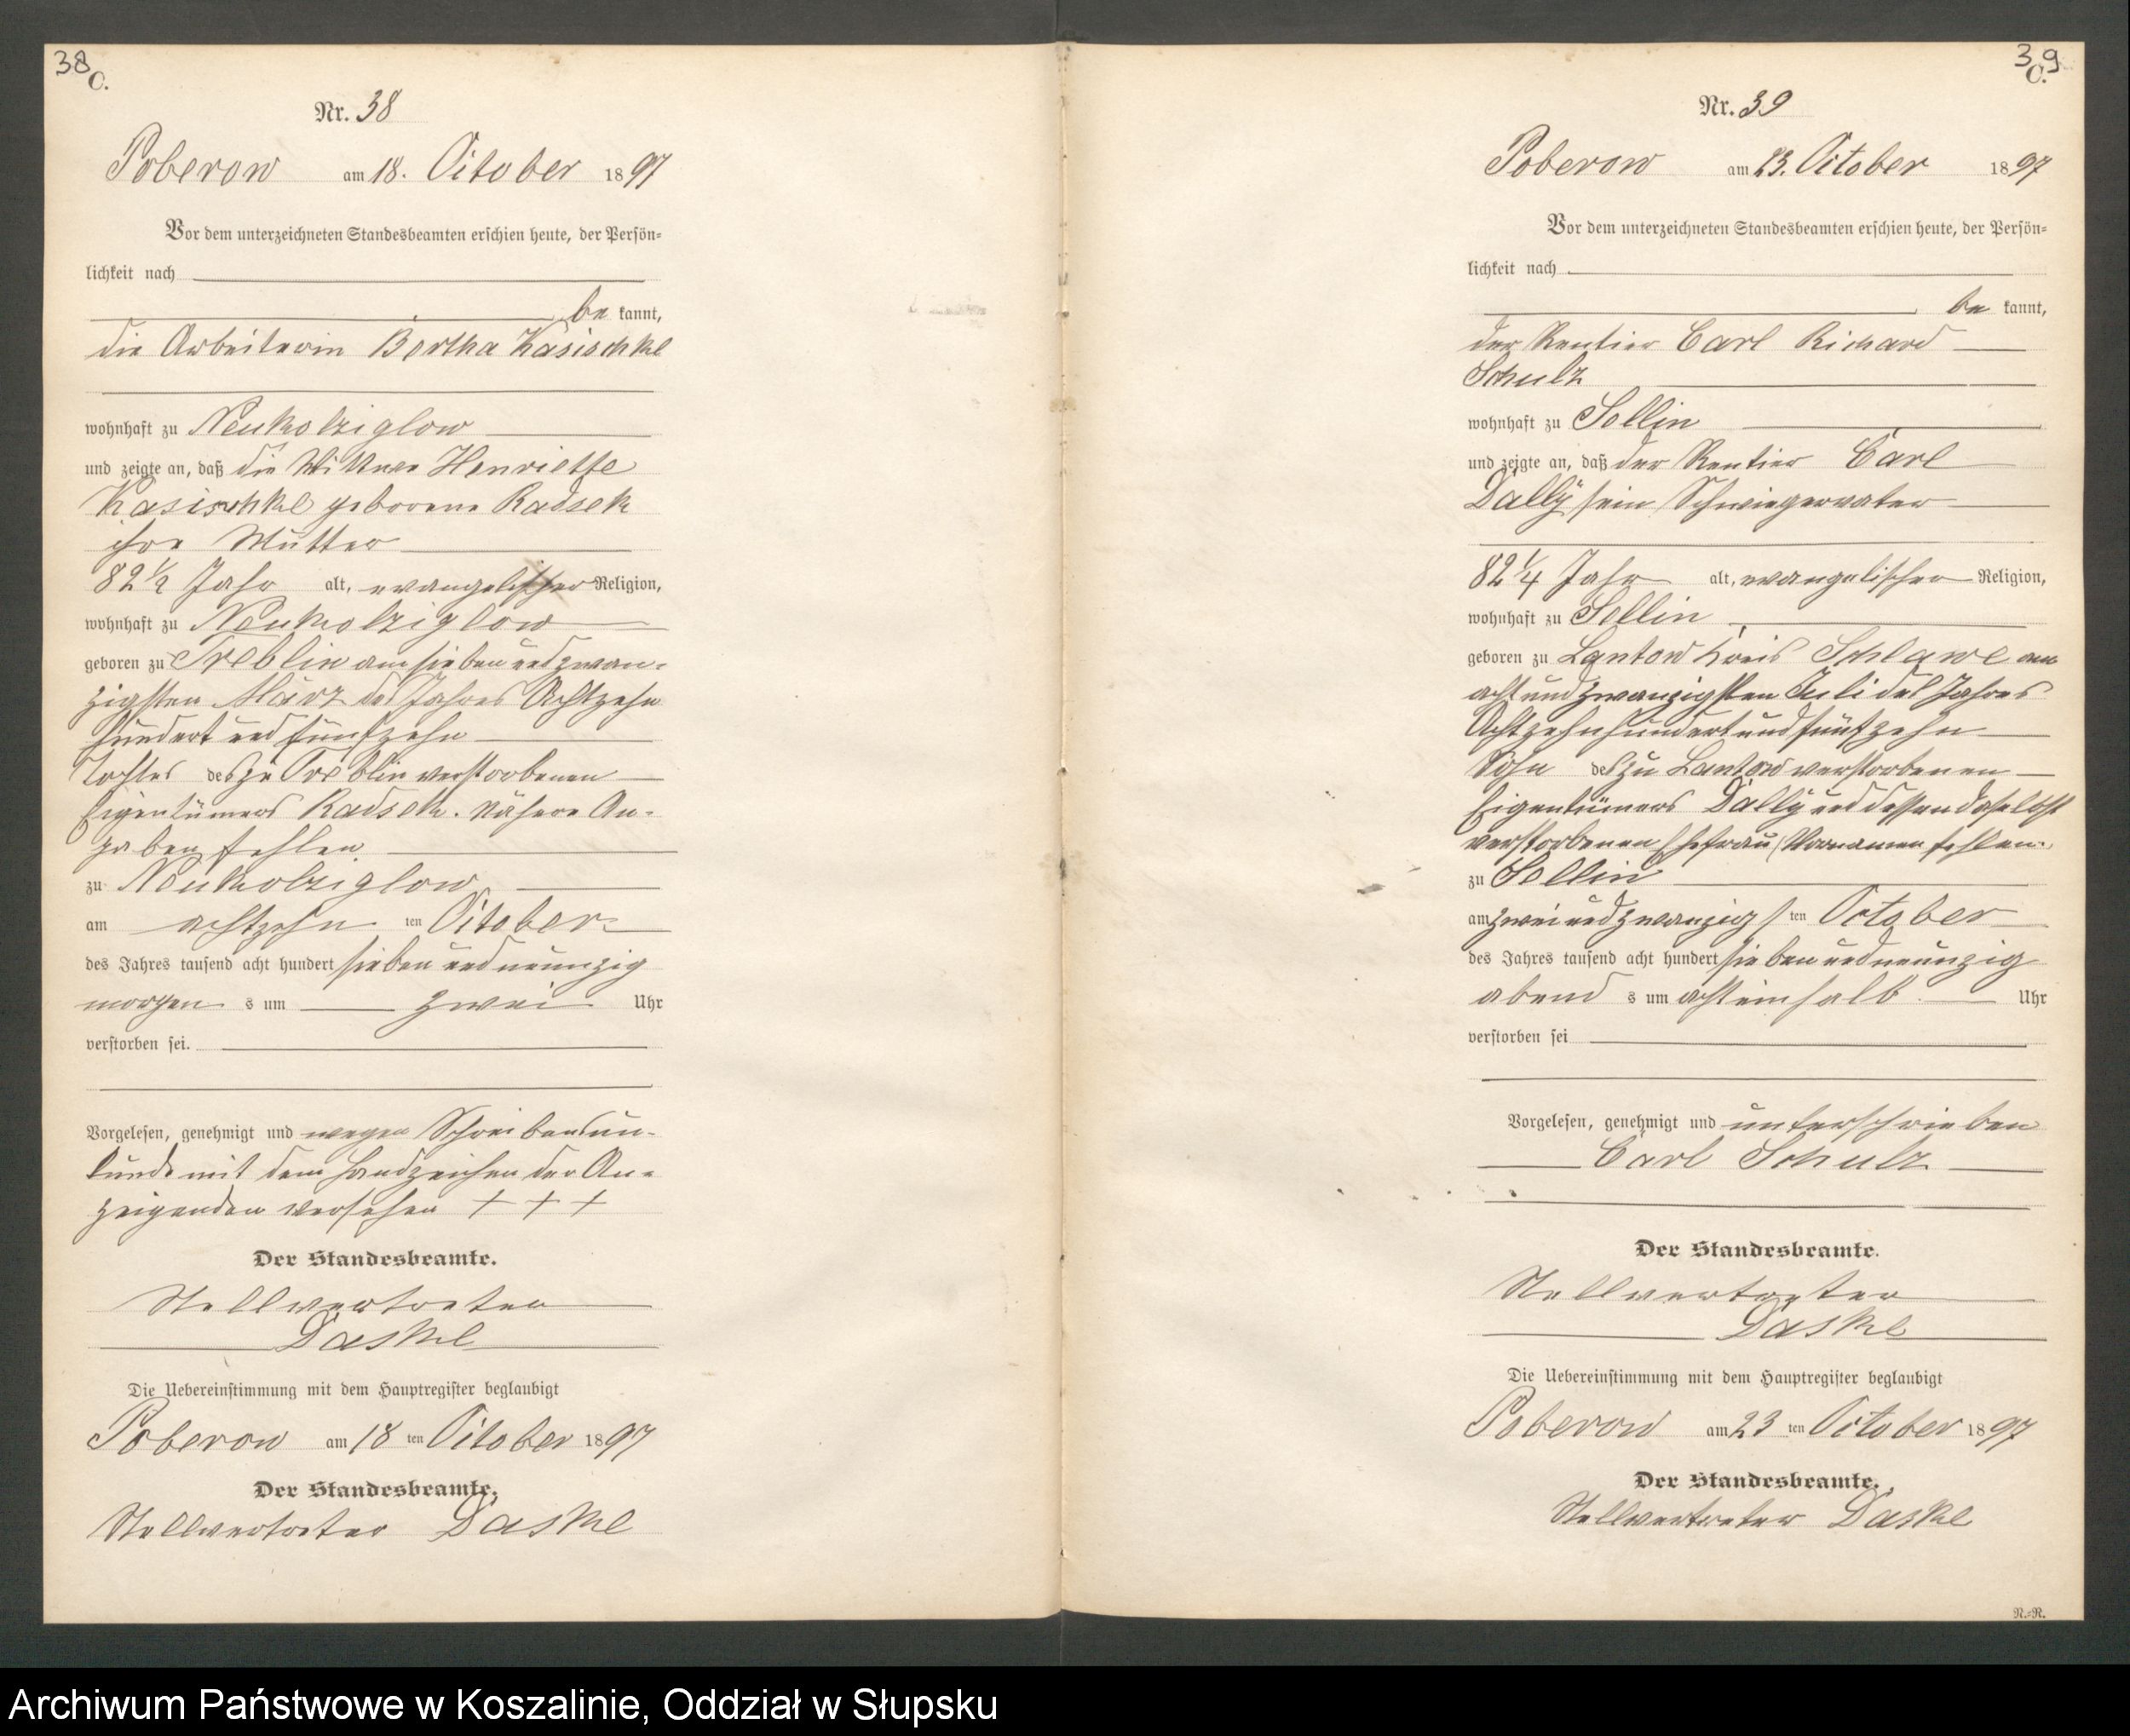 38
C.
Nr. 38
Poberow am 18. October 1897
Vor dem unterzeichneten Standesbeamten erschien heute, der Persön-
lichkeit nach
be kannt,
die Arbeiterin Bertha Kasischke
wohnhaft zu Neukolziglow
und zeigte an, daß die Wittwe Henriette
Kasischke geborene Radsek
ihre Mutter
82 1/2 Jahr alt, evangelischer Religion,
wohnhaft zu Neukolziglow
geboren zu Treblin am sieben und zwan-
zigsten März des Jahres Achtzehn
hundert und fünfzehn
Tochter des zu Treblin verstorbenen
Eigentümers Radsek. Nähere An-
gaben fehlen
zu Neukolziglow
am achtzehn ten October
des Jahres tausend acht hundert sieben und neunzig
morgen s um zwei Uhr
verstorben sei.
Vorgelesen, genehmigt und wegen Schreibensun-
kunde mit dem Handzeichen der An-
zeigenden versehen + + +
Der Standesbeamte.
Stellvertreter
Daske
Die Uebereinstimmung mit dem Hauptregister beglaubigt
Poberow am 18 ten October 1897
Der Standesbeamte.
Stellvertreter Daske
39
C.
Nr. 39
Poberow am 23. October 1897
Vor dem unterzeichneten Standesbeamten erschien heute, der Persön-
lichkeit nach
be kannt,
der Rentier Carl Richard
Schulz
wohnhaft zu Sellin
und zeigte an, daß der Rentier Carl
Dally sein Schwiegervater
82 1/4 Jahr alt, evangelischer Religion,
wohnhaft zu Sellin
geboren zu Lantow Kreis Schlawe am
acht und zwanzigsten Juli des Jahres
Achtzehnhundert und fünfzehn
Sohn des zu Lantow verstorbenen
Eigentümers Dally und dessen daselbst
verstorbenen Ehefrau (Vornamen fehlen.
zu Sellin
am zwei und zwanzigs ten October
des Jahres tausend acht hundert sieben und neunzig
abend s um achteinhalb Uhr
verstorben sei
Vorgelesen, genehmigt und unterschrieben
Carl Schulz
Der Standesbeamte.
Stellvertreter
Daske
Die Uebereinstimmung mit dem Hauptregister beglaubigt
Poberow am 23 ten October 1897
Der Standesbeamte.
Stellvertreter Daske
N.-N.
Archiwum Państwowe w Koszalinie, Oddział w Słupsku